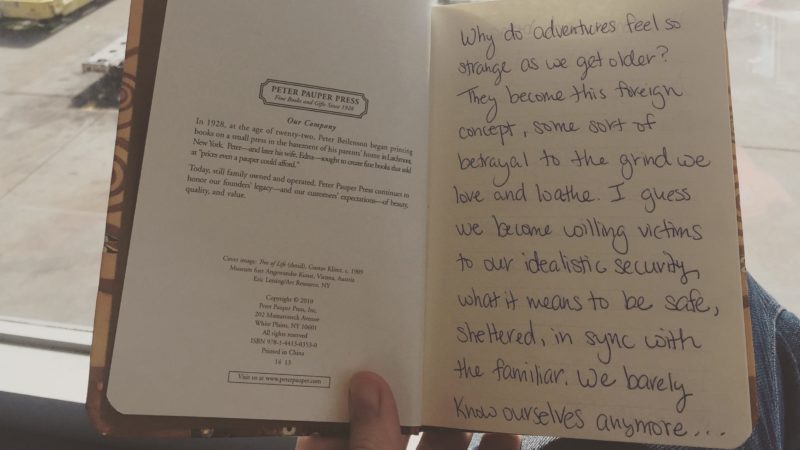 PETER PAUPER PRESS
Fine Books and Gifts Since 1928
Our Company
In 1928, at the age of twenty-two, Peter Beilenson began printing
books on a small press in the basement of his parents' home in Larchmont,
New York. Peter—and later his wife, Edna—sought to create fine books that sold
at "prices even a pauper could afford."
Today, still family owned and operated, Peter Pauper Press continues to
honor our founders' legacy—and our customers' expectations—of beauty,
quality, and value.
Cover image: Tree of Life (detail), Gustav Klimt, c. 1909
Museum fuer Angewandte Kunst, Vienna, Austria
Erich Lessing/Art Resource, NY
Copyright © 2010
Peter Pauper Press, Inc.
202 Mamaroneck Avenue
White Plains, NY 10601
All rights reserved
ISBN 978-1-4413-0353-0
Printed in China
14 13
Visit us at www.peterpauper.com
Why do adventures feel so
strange as we get older?
They become this foreign
concept, some sort of
betrayal to the grind we
love and loathe. I guess
we become willing victims
to our idealistic security,
what it means to be safe,
sheltered, in sync with
the familiar. We barely
know ourselves anymore...